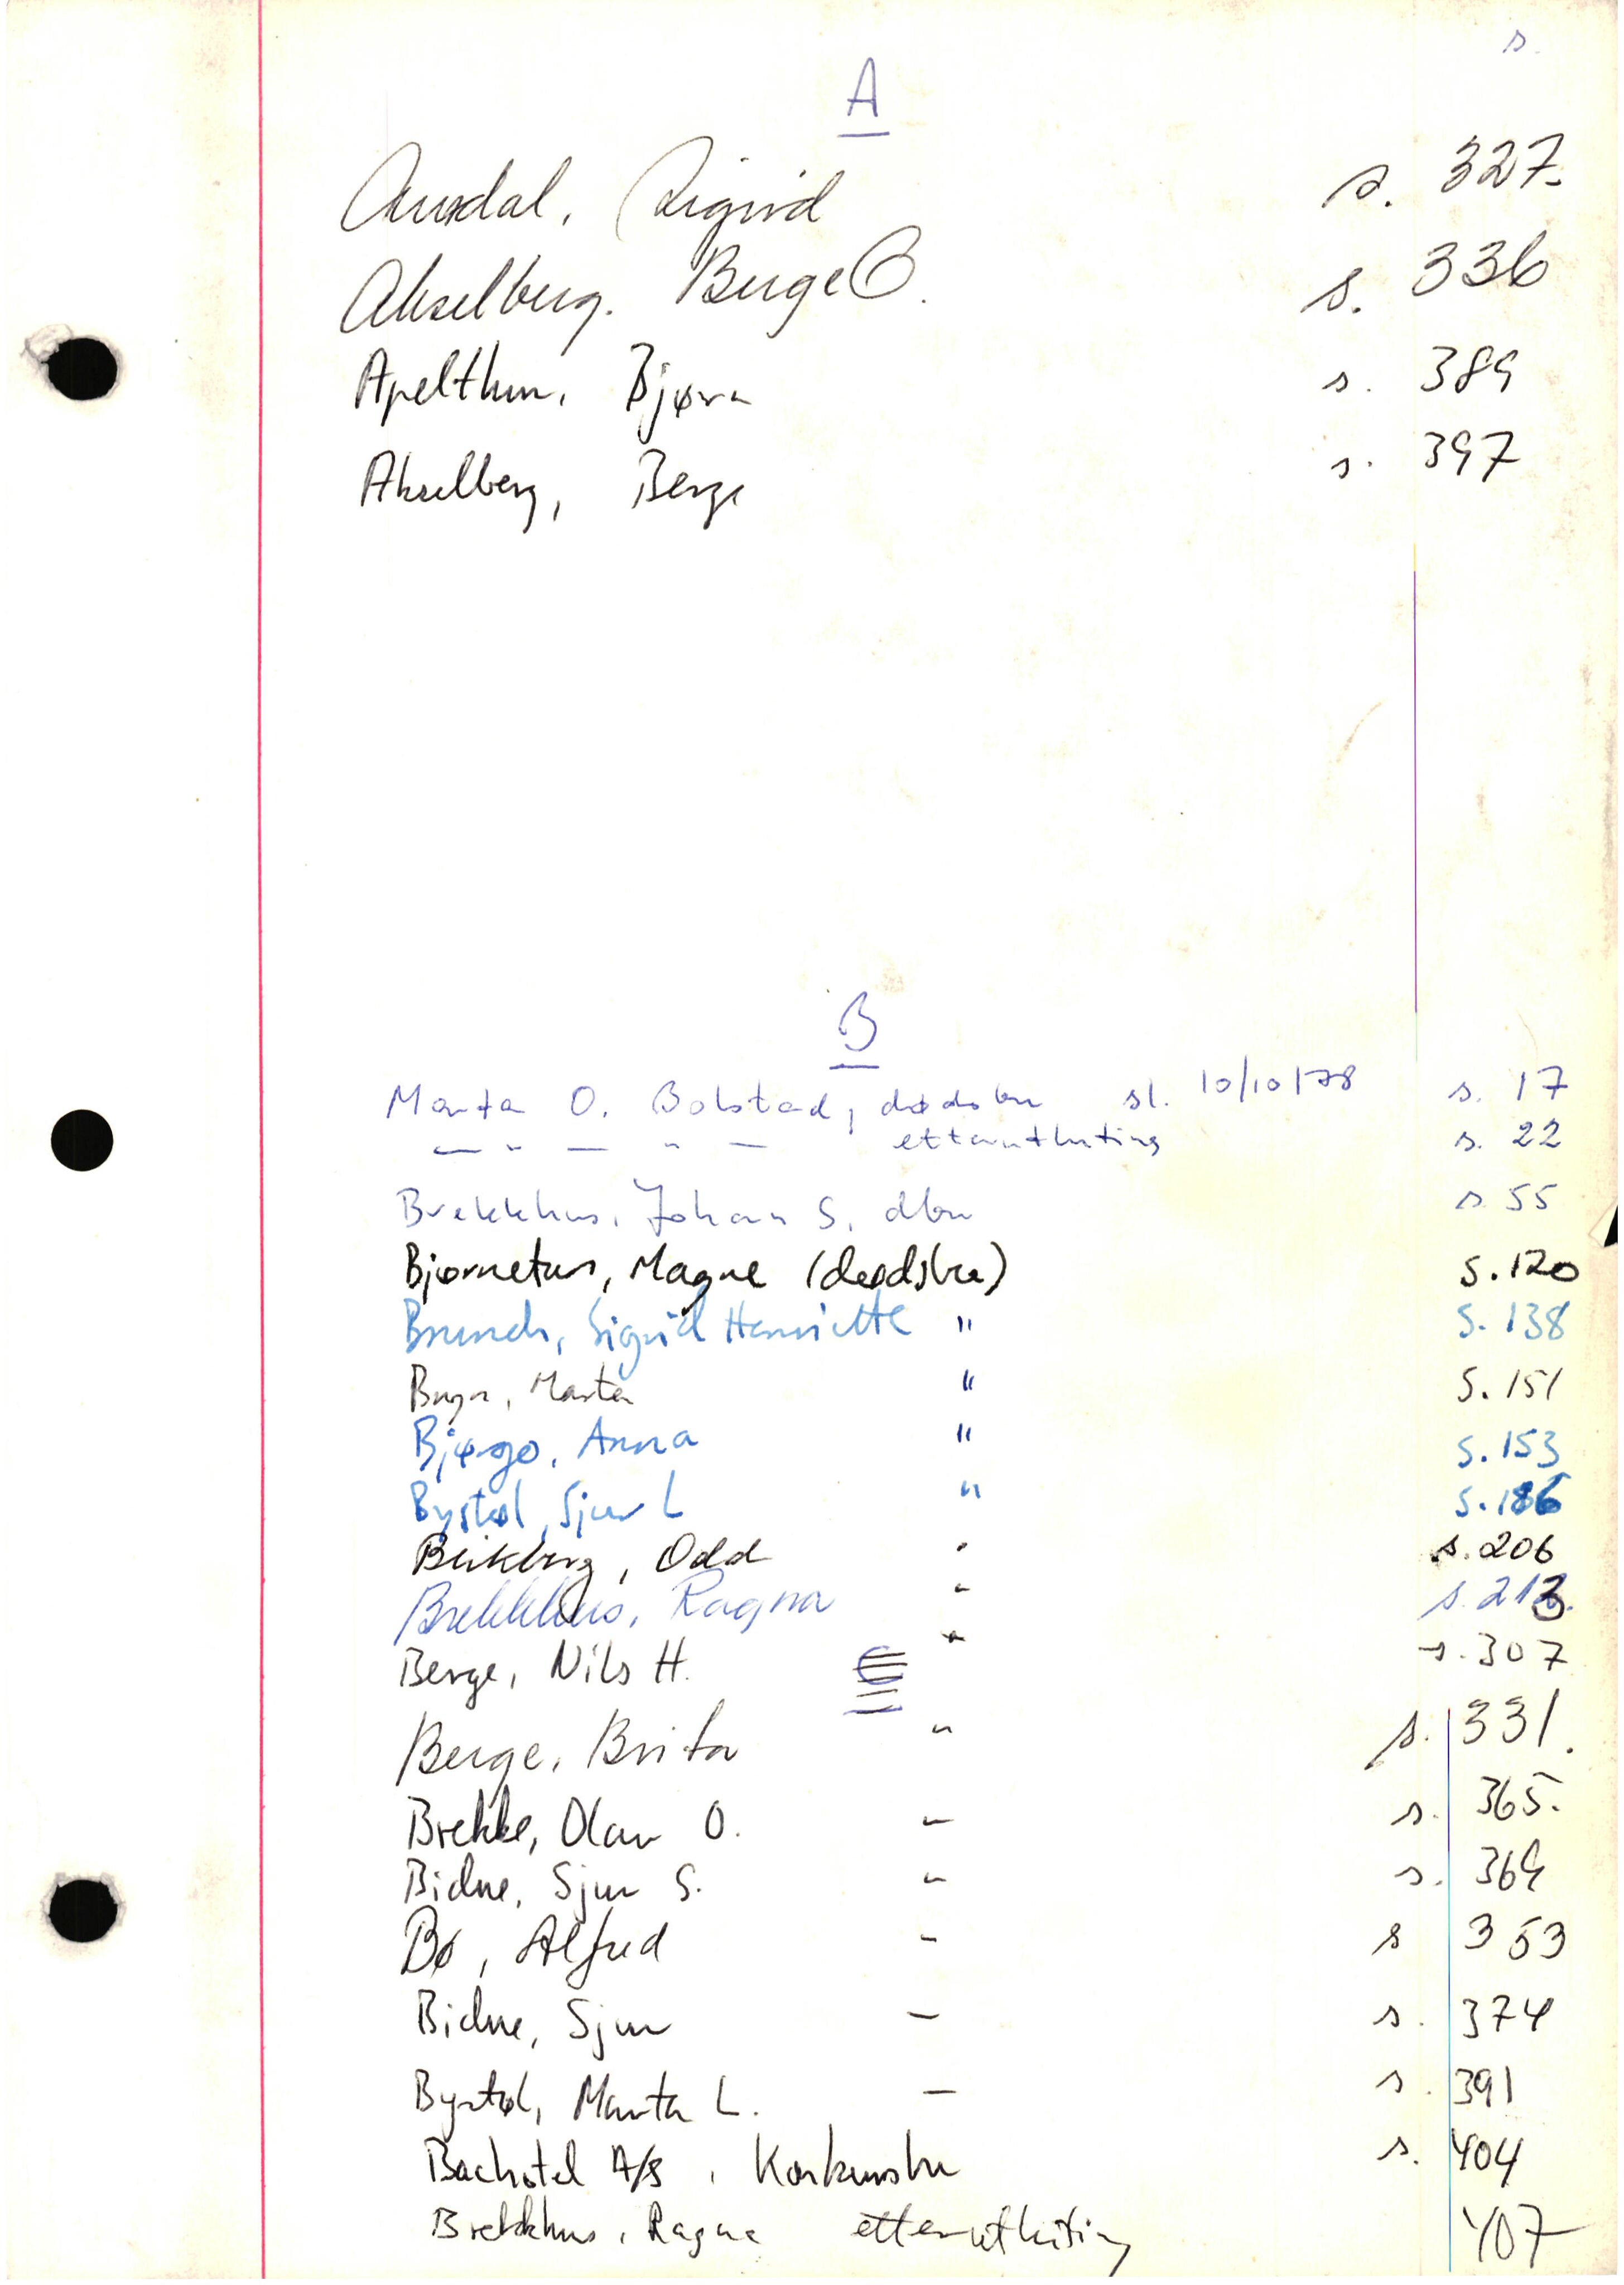 s.
A
Austdal, Sigrid s. 327.
Akselberg. Berge O. s. 336
Apelthun, Bjørn s. 389
Akselberg, Berge s. 397
B
Marta O. Bolstad, dødsbu sl. 10/10/78 s. 17
— " — " — etterutluting s. 22
Brekkhus, Johan S. dbu s. 55
Bjørnetun, Magne (dødsbu) s. 120
Brunch, Sigrid Henriette " s. 138
Marta " s. 151
Bjørgo, Anna " s. 153
Bystøl, Sjur L " s. 186
Odd " s. 206
Brekkhus, Ragna " s. 213.
Berge, Nils H. " s. 307
Berge, Brita " s. 331.
Brekke, Olav O. " s. 365.
Bidne, Sjur S. " s. 369
Bø, Alfred - s 353
Bidne, Sjur — s. 374
Bystøl, Marta L. — s. 391
Bachotel A/S, Konkursbu s. 404
Brekkhus, Ragna etterutluting 407